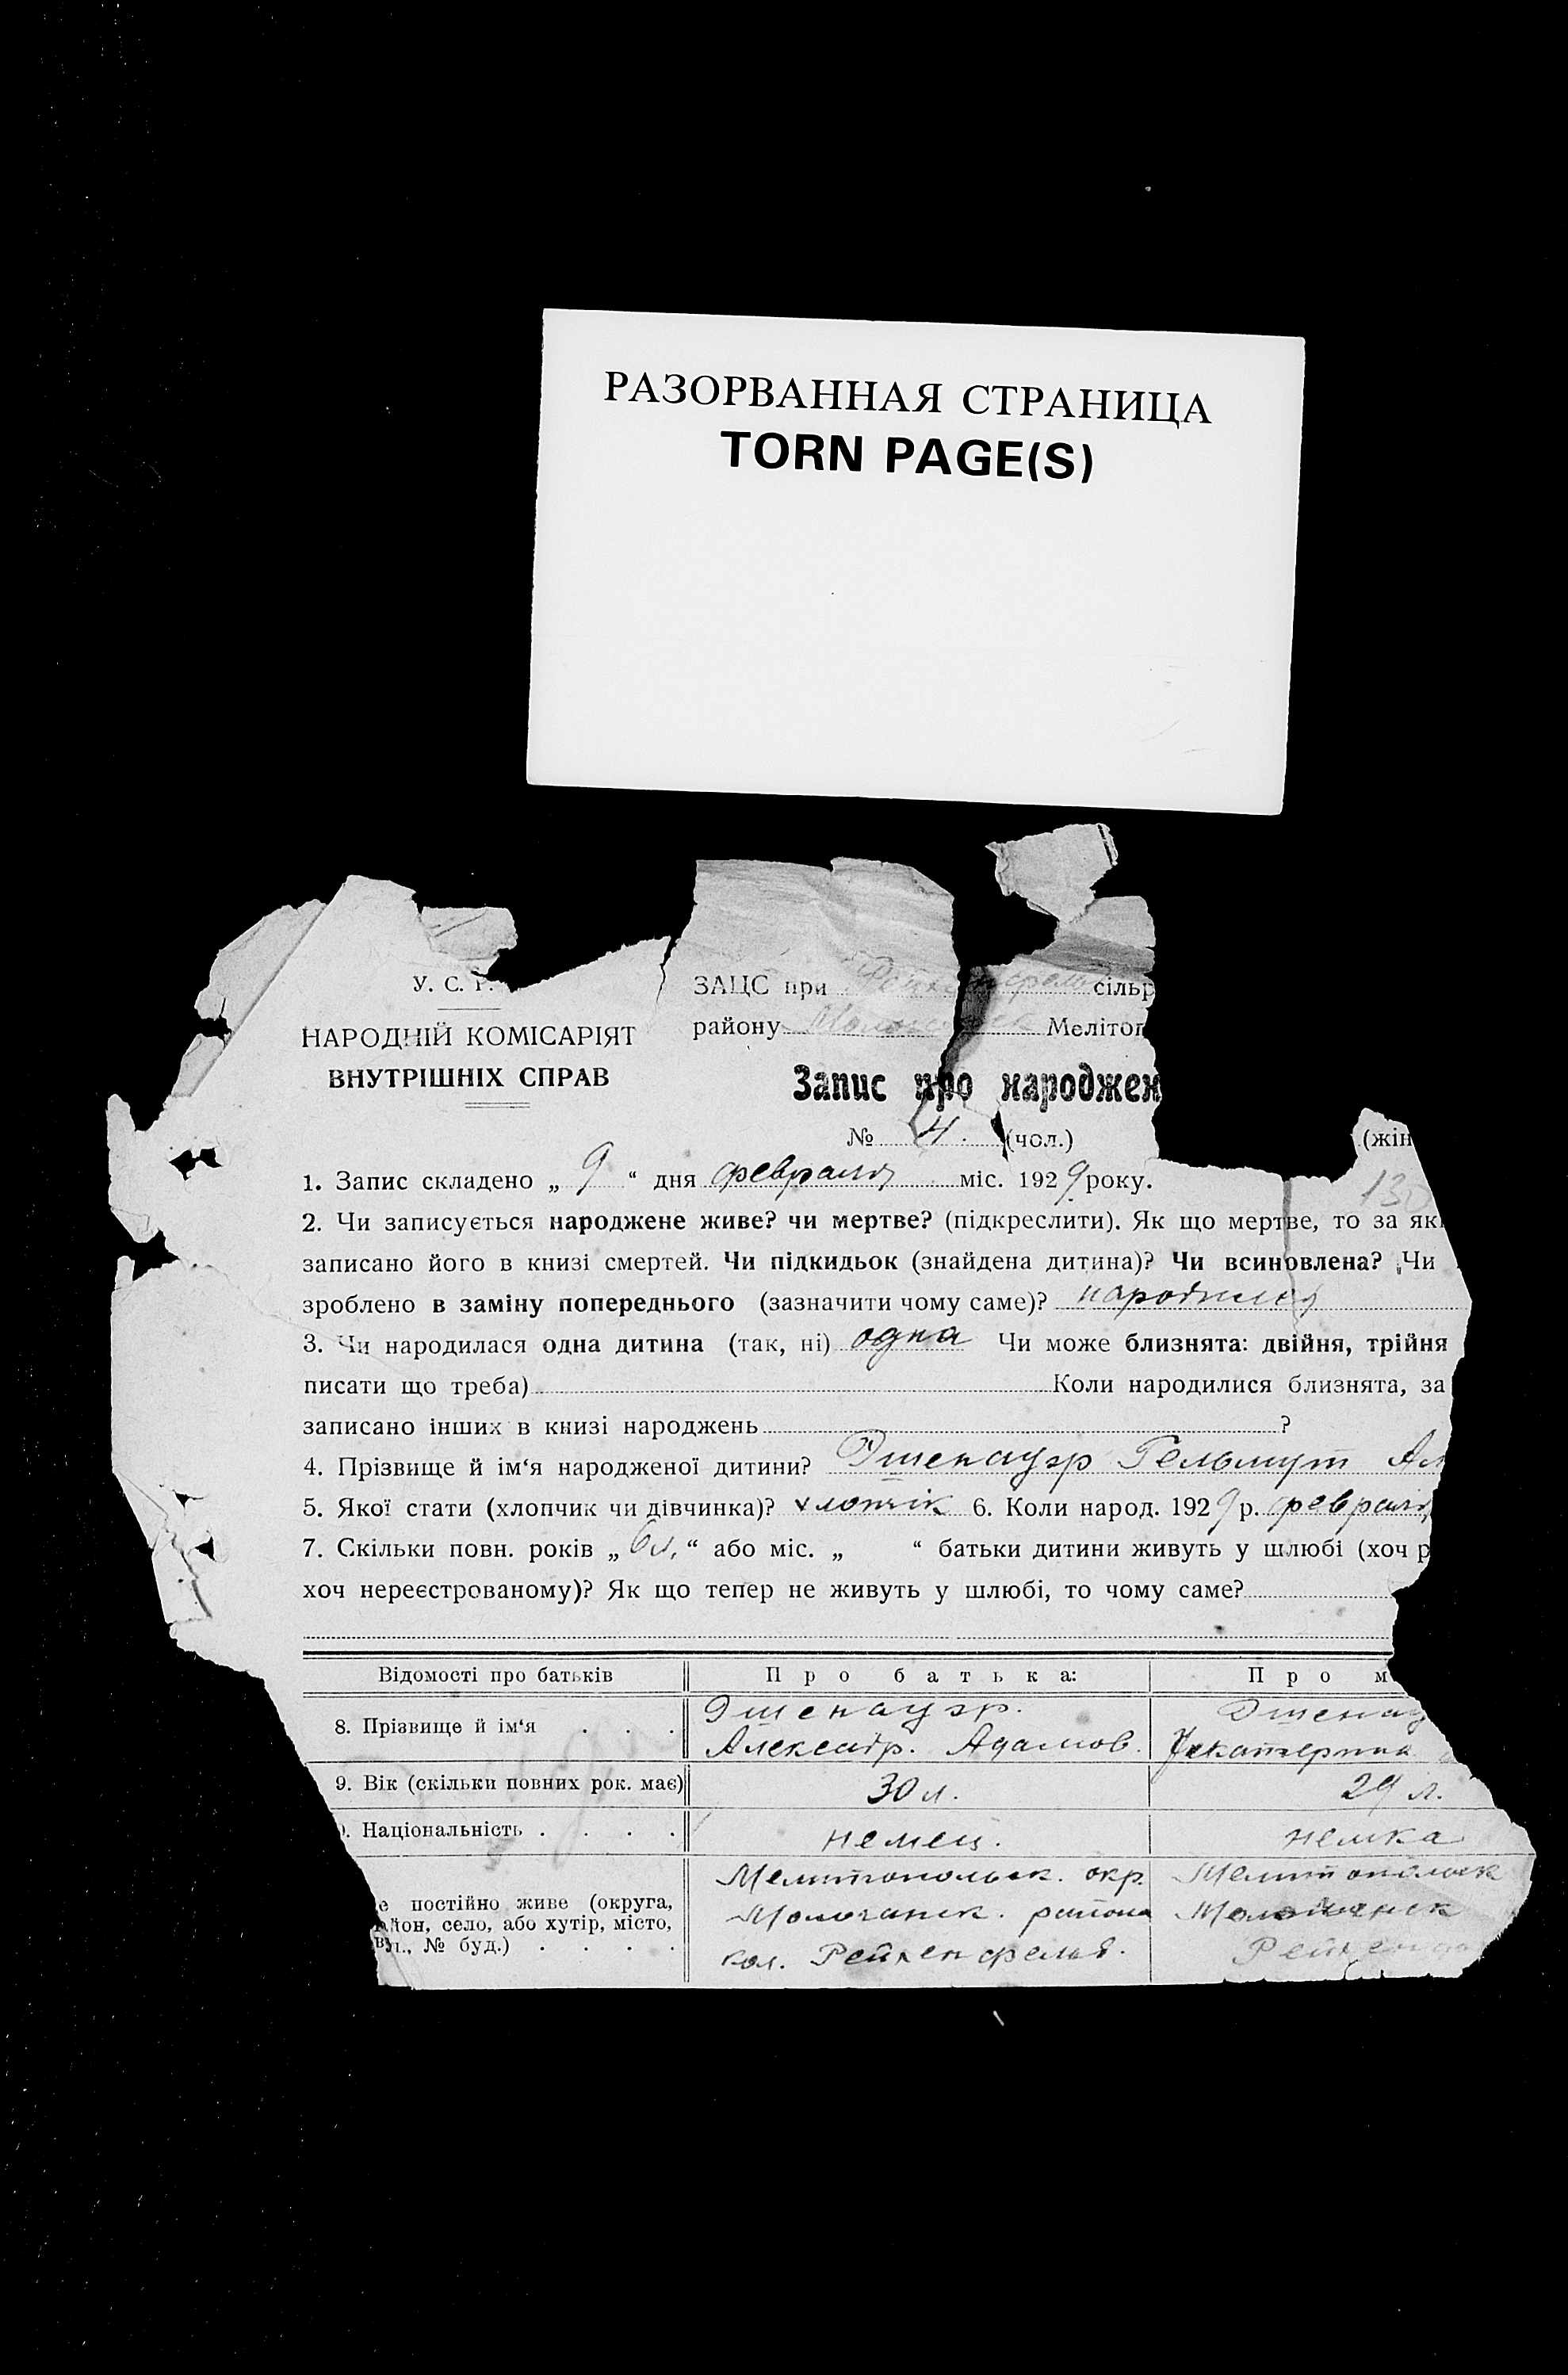 РАЗОРВАННАЯ СТРАНИЦА
TORN PAGE(S)
У. С. Р.
НАРОДНІЙ КОМІСАРІЯТ
ВНУТРІШНІХ СПРАВ
ЗАЦС при сільр
району Мелітоп
Запис про народжен
№ 4. (чол.) (жін
1. Запис складено „ 9 “ дня февраля міс. 1929 року.
130
2. Чи записується народжене живе? чи мертве? (підкреслити). Як що мертве, то за як
записано його в книзі смертей. Чи підкидьок (знайдена дитина)? Чи всиновлена? Чи
зроблено в заміну попереднього (зазначити чому саме)?
3. Чи народилася одна дитина (так, ні) одна Чи може близнята: двійня, трійня
писати що треба) Коли народилися близнята, за
записано інших в книзі народжень ?
4. Прізвище й ім‘я народженої дитини? Эшенауэр Гельмут Ал
5. Якої стати (хлопчик чи дівчинка)? хлопчік 6. Коли народ. 1929 р. февраля
7. Скільки повн. років „ 6 л. “ або міс. „ “ батьки дитини живуть у шлюбі (хоч р
хоч нереєстрованому)? Як що тепер не живуть у шлюбі, то чому саме?
Відомості про батьків Про батька: Про м
8. Прізвище й ім‘я . . . Эшенауэр. Эшенау
Александр. Адамов. Екатерина
9. Вік (скільки повних рок. має) 30 л. 29 л.
). Національність . . . . немец. немка
Мелитопольск. окр. Мелитопольск
е постійно живе (округа,
айон, село, або хутір, місто, Молочанск. района Молочанск
вул., № буд.) . . . . кол. Рейхенфельд. Рейхенф